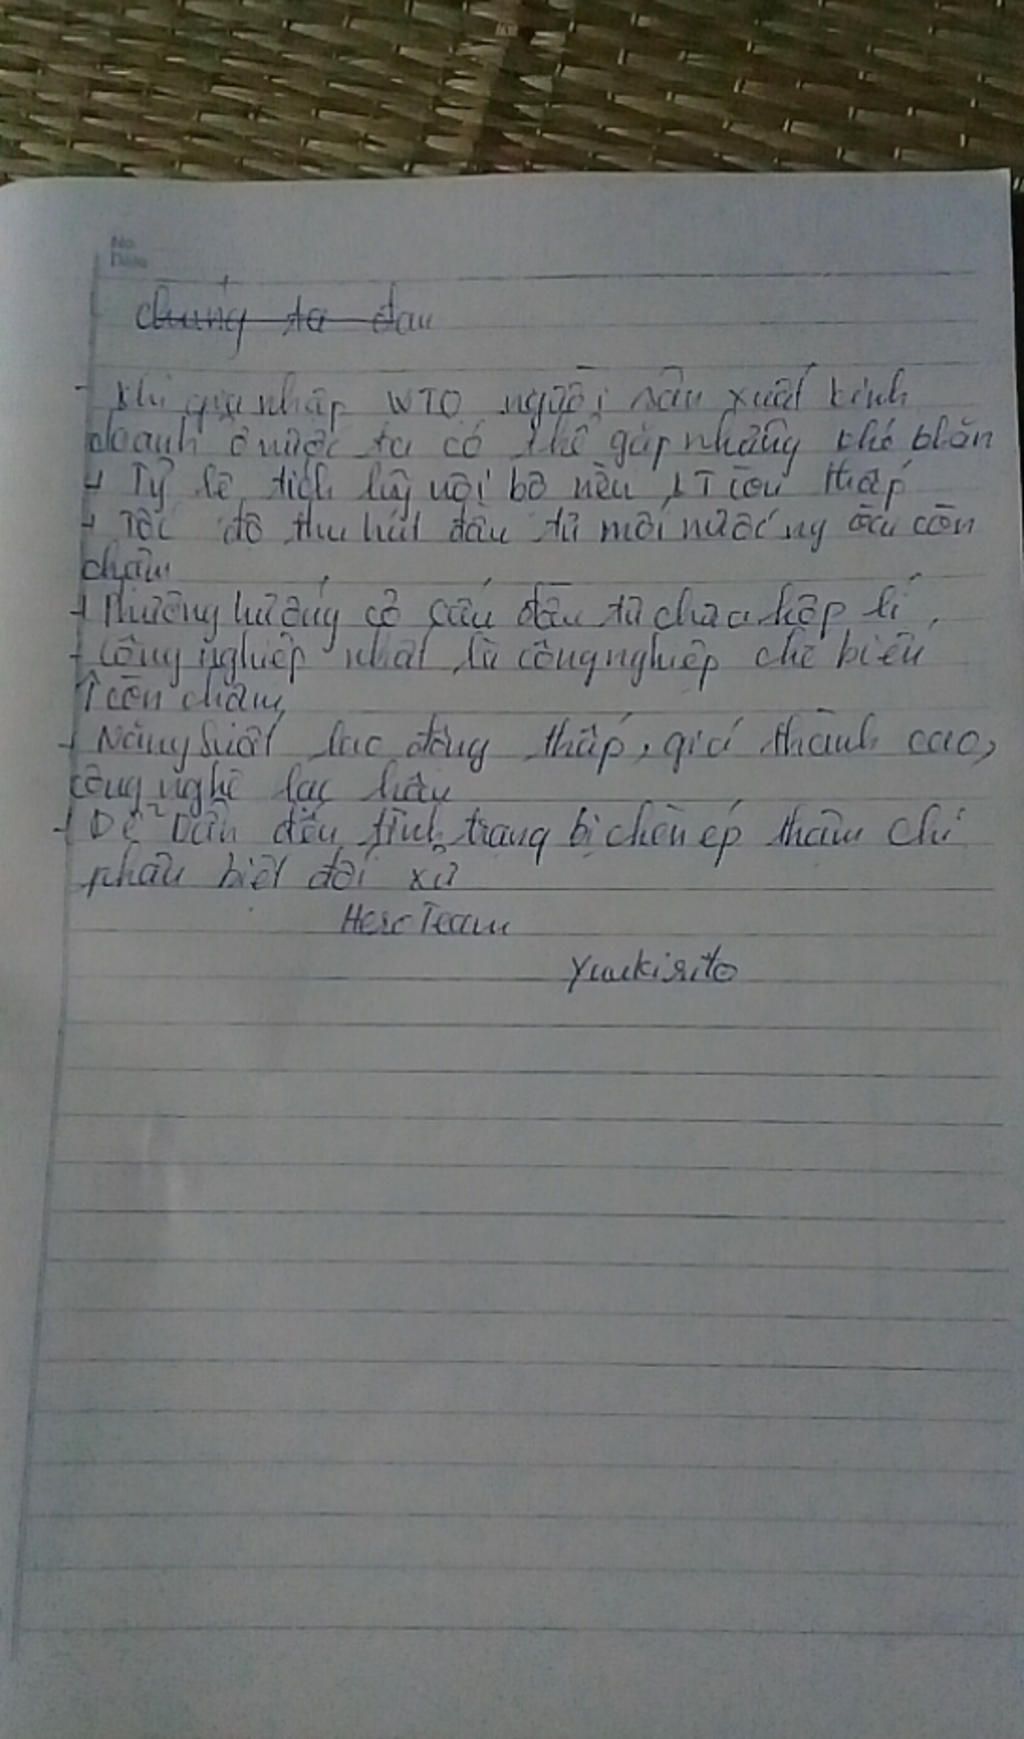 No.
Date
chúng ta đau
- Khi gia nhập WTO người sản xuất kinh
doanh ở nước ta có thể gặp những khó khăn
+ Tỷ lệ tích lũy nội bộ nền KT còn thấp
+ Tốc độ thu hút đầu tư mới nước ng còn
chậm
+ Phương hướng cơ cấu đầu tư chưa hợp lí
+ Công nghiệp nhất là công nghiệp chế biến
còn chậm
+ Năng suất lao động thấp, giá thành cao,
công nghệ lạc hậu
+ Dễ Dẫn đến tình trạng bị chèn ép thậm chí
phân biệt đối xử
Hero Team
Yuukirito